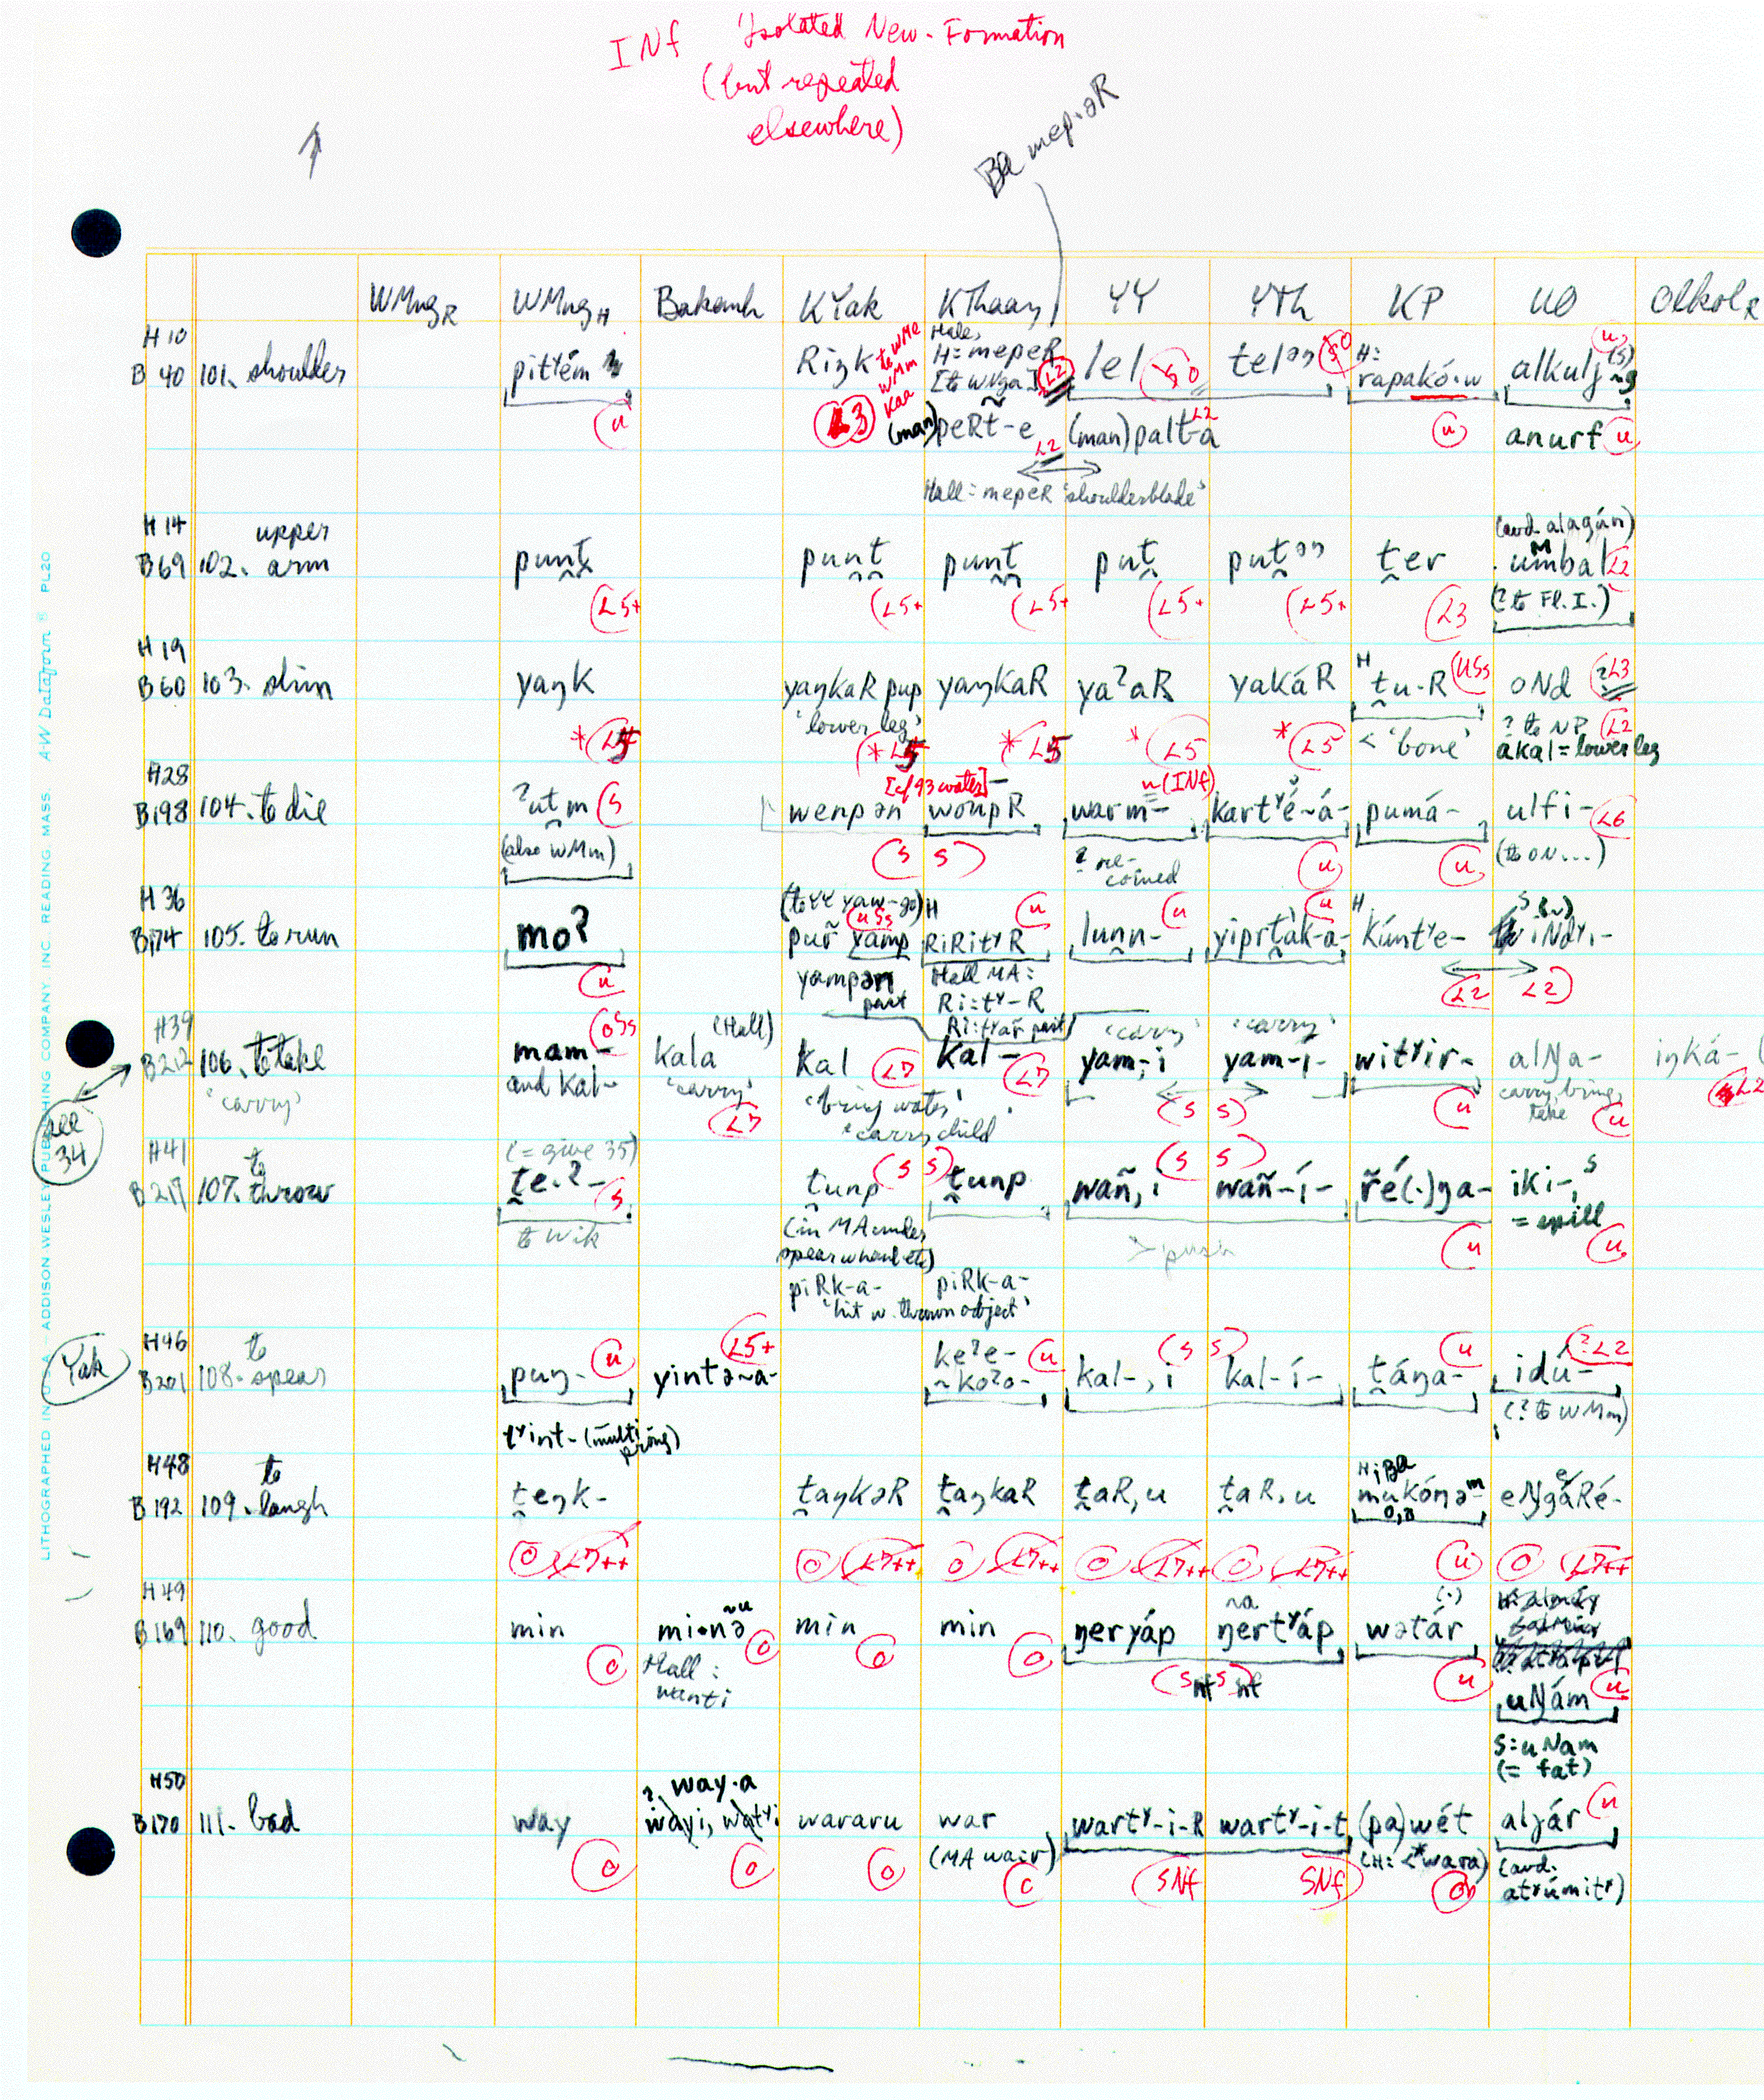 INf Isolated New-Formation
(but repeated
elsewhere)
Ba mep.əR
WMngR WMngH Bakanh KYak KThaay YY YTh KP UO OlkolR
H10
B 40 101. shoulder pitʸém Riŋk to WMe WMm Kaa Hale, H= mepeR [to WNga] L2 lel telən H: rapakó·w alkulj (s)
u L3 (man) peRt-e L2 (man)palt-a L2 u anurf u
Hall = mepeR 'shoulderblade'
H14 upper (avd. alagán)
B69 102. arm punt punt punt put putən ter umbal L2
L5+ L5+ L5+ L5+ L5+ L3 (? to Fl. I.)
H19
B60 103. shin yaŋk yaŋkaR pup yaŋkaR yaʔaR yakáR H tu·R USs oNd ?L3
'lower leg' ? to NP L2
*L5 *L5 *L5 *L5 *L5 < 'bone' akal = lower leg
H28 [cf 93 water] u (INf)
B198 104. to die ʔutm s wenpən wonpR warm- kartʸé~á- pumá- ulfi- L6
(also WMm) s s ? re-coined u u (to ON...)
H36 (to YY yaw-go) H u u u H s (~)
B174 105. to run moʔ puř yamp uSs RiRitʸR lunn- yiprtak-a- kúntʸe- iNdʸi-
u yampən part Hall MA: Ri:tʸ-R Ri:tʸař part L2 L2
H39 oSs (Hall) 'carry' 'carry'
B212 106. to take mam- kala kal L7 kal- L7 yam,i yam-í- witʸir- alŊa- iŋká-
'carry' and kal- 'carry' 'bring water' s s u carry, bring, take L2
see 34 L7 'carry child' u
H41 to (= give 35) s s s s
B217 107. throw te·ʔ- s tunp tunp wañ, i wañ-í- řé(·)ŋa- iki-, s
to Wik (in MA under spear wound etc) > push = spill
u u
piRk-a- piRk-a-
'hit w. thrown object'
Yak
H46 to u L5+ keʔe- u s s u ?L2
B201 108. spear puŋ- yintə~a- ~koʔo- kal-, i kal-í- táŋa- idú-
(? to WMm)
tʸint- (multi prong)
H48 to H; Ba
B192 109. laugh teŋk- taŋkəR taŋkaR taR, u taR, u mukóŋə- eNgáRé-
o L7++ o L7++ o L7++ o L7++ o L7++ u o L7++
H49 ~u ~a (·)
B169 110. good min mi·nə o min min ŋeryáp ŋertʸáp wətár
o Hall: o o s s u uŊám u
nt nt
S: uNam
(= fat)
H50 ? way·a
B170 111. bad way wayi, watʸi wararu war wartʸ-i-R wartʸ-i-t (pa)wét aljár u
(MA wa:r) (H: <*wara) (avd. atʸúmitʸ)
o o o o SNf SNf o
LITHOGRAPHED IN U.S.A. ADDISON WESLEY PUBLISHING COMPANY, INC. READING MASS. A-W Dataform ® PL20